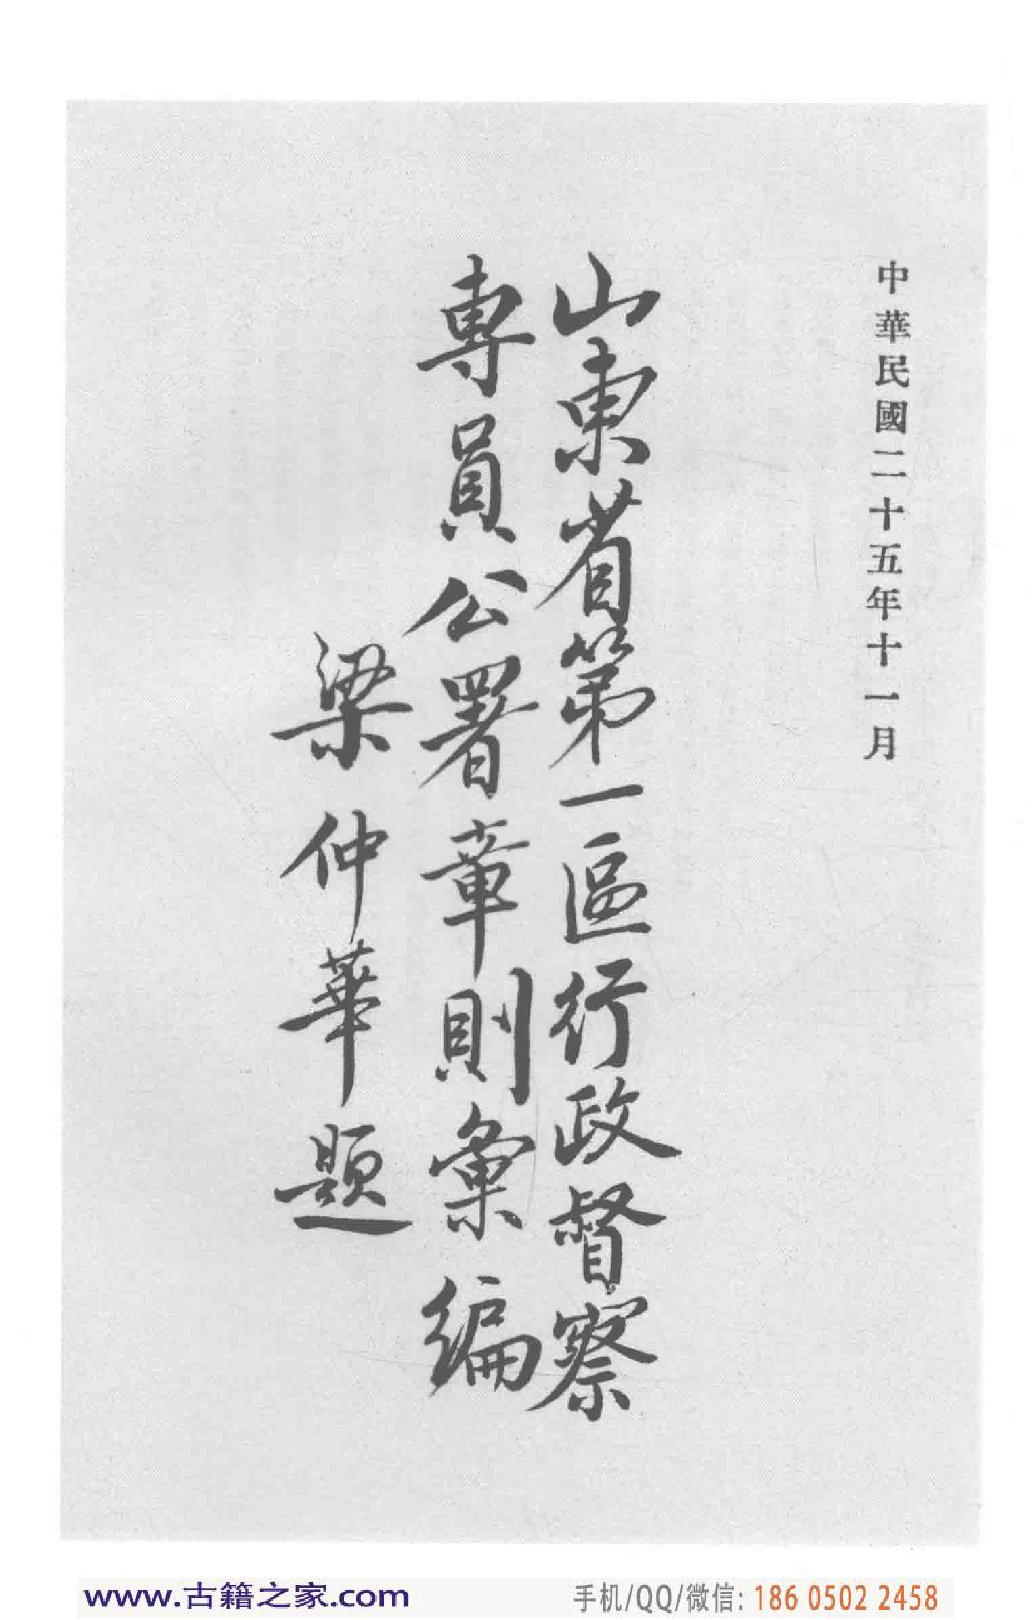 中華民國二十五年十一月
山東省第一區行政督察
專員公署章則彙編
梁仲華題
www.古籍之家.com
手机/QQ/微信: 186 0502 2458